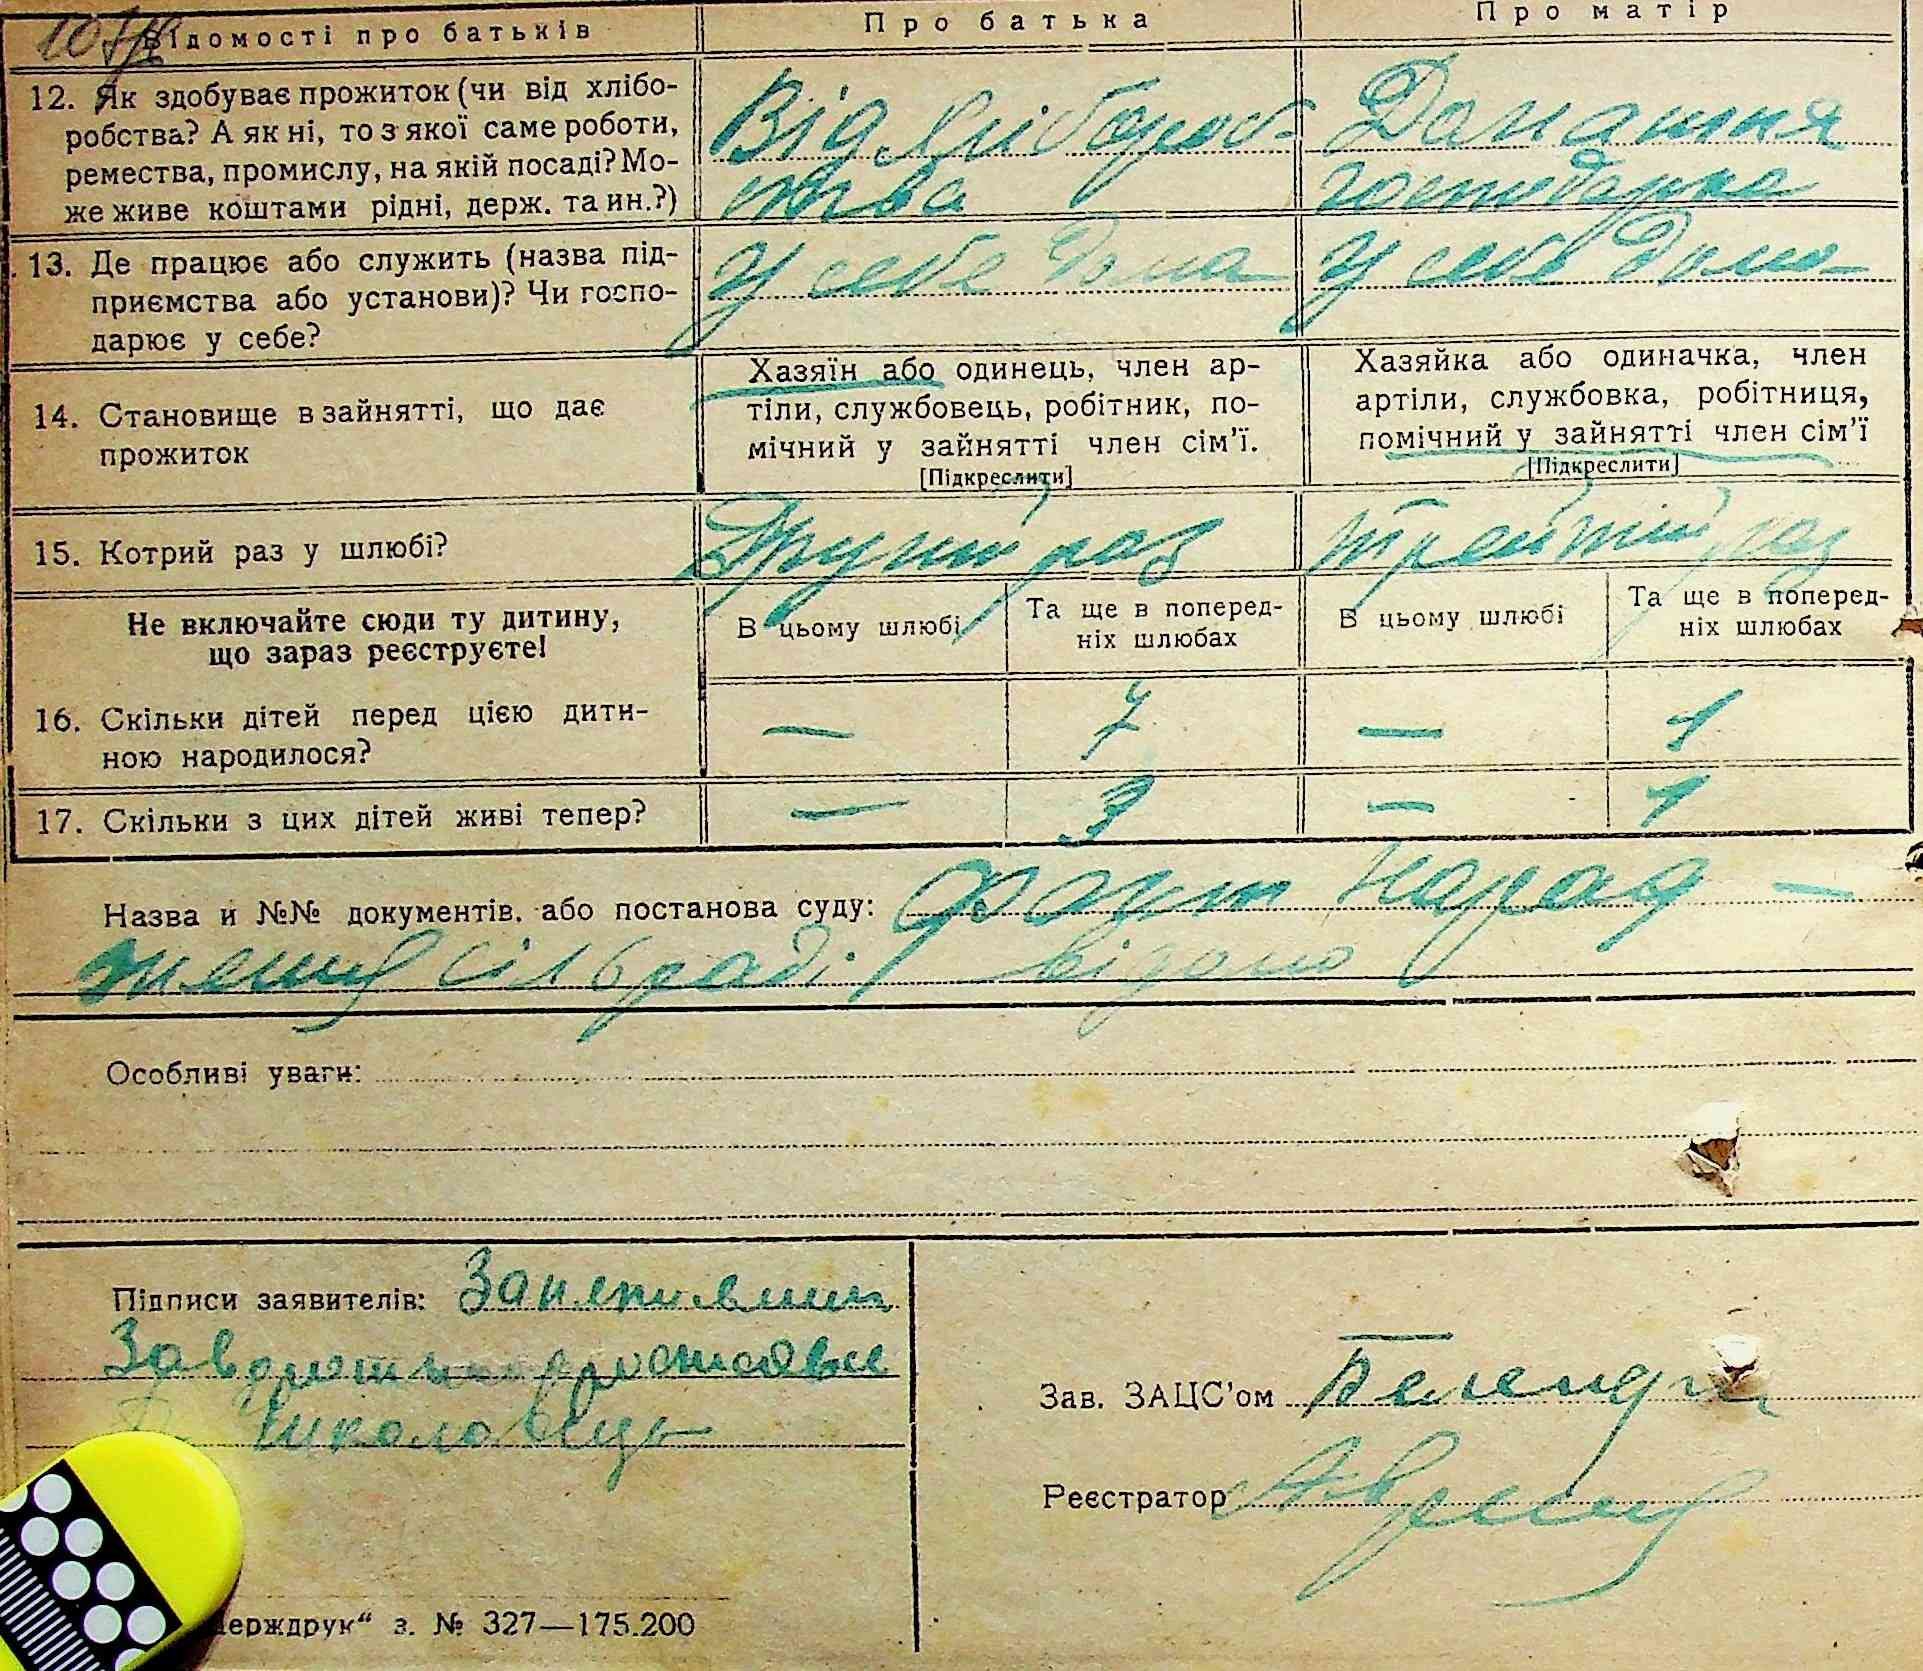 Відомості про батьків Про батька Про матір
12. Як здобуває прожиток (чи від хлібо- Від хлібороб- Домашня
робства? А як ні, то з якої саме роботи,
ремества, промислу, на якій посаді? Мо- ства господарка
же живе коштами рідні, держ. та ин.?)
13. Де працює або служить (назва під- У себе дома У себе дома
приємства або установи)? Чи госпо-
дарює у себе?
14. Становище в зайнятті, що дає прожиток
Хазяїн або одинець, член ар-
тіли, службовець, робітник, по-
мічний у зайнятті член сім'ї.
[Підкреслити]
Хазяйка або одиначка, член
артіли, службовка, робітниця,
помічний у зайнятті член сім'ї
[Підкреслити]
15. Котрий раз у шлюбі? Другий раз третий раз
Не включайте сюди ту дитину,
що зараз реєструєте!
В цьому шлюбі Та ще в поперед-
ніх шлюбах
В цьому шлюбі Та ще в поперед-
ніх шлюбах
16. Скільки дітей перед цією дити- — 7 — 1
ною народилося?
17. Скільки з цих дітей живі тепер? — 3 — 1
Назва и №№ документів. або постанова суду: Факт народ-
ження сільраді відомо
Особливі уваги:
Підписи заявителів:
Зав. ЗАЦС'ом
Реєстратор
держдрук“ з. № 327—175.200